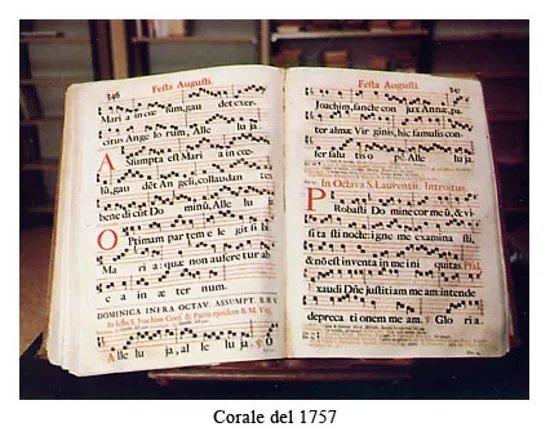 346
Festa Augusti.
Mari a in cœ rum, gau det exer-
citus Ange lo rum, Alle lu ja.
A Ssumpta est Mari a in cœ-
lũ, gau dẽt An geli, collaudan tes
bene di cũt Do minũ, Alle lu ja
O Ptimam par tem e le git si bi
Ma ri a: quæ non aufere tur ab
e a in æ ter num.
DOMINICA INFRA OCTAV. ASSUMPT. B.M.V.
Alle lu ja, al le lu ja. ℣ O
Festa Augusti.
347
Joachim, sancte con jux Annæ, pa-
ter almæ Vir ginis, hic famulis con-
fer salu tis o pẽ. Alle lu ja.
In Octava S. Laurentii. Introitus.
P Robasti Do mine cor meũ, & vi-
si ta sti nocte: igne me examina sti,
& nõ est inventa in me ini quitas Psal.
Exaudi Dñe justiti am me am intende
depreca ti onem me am. ℣ Glo ria.
Corale del 1757